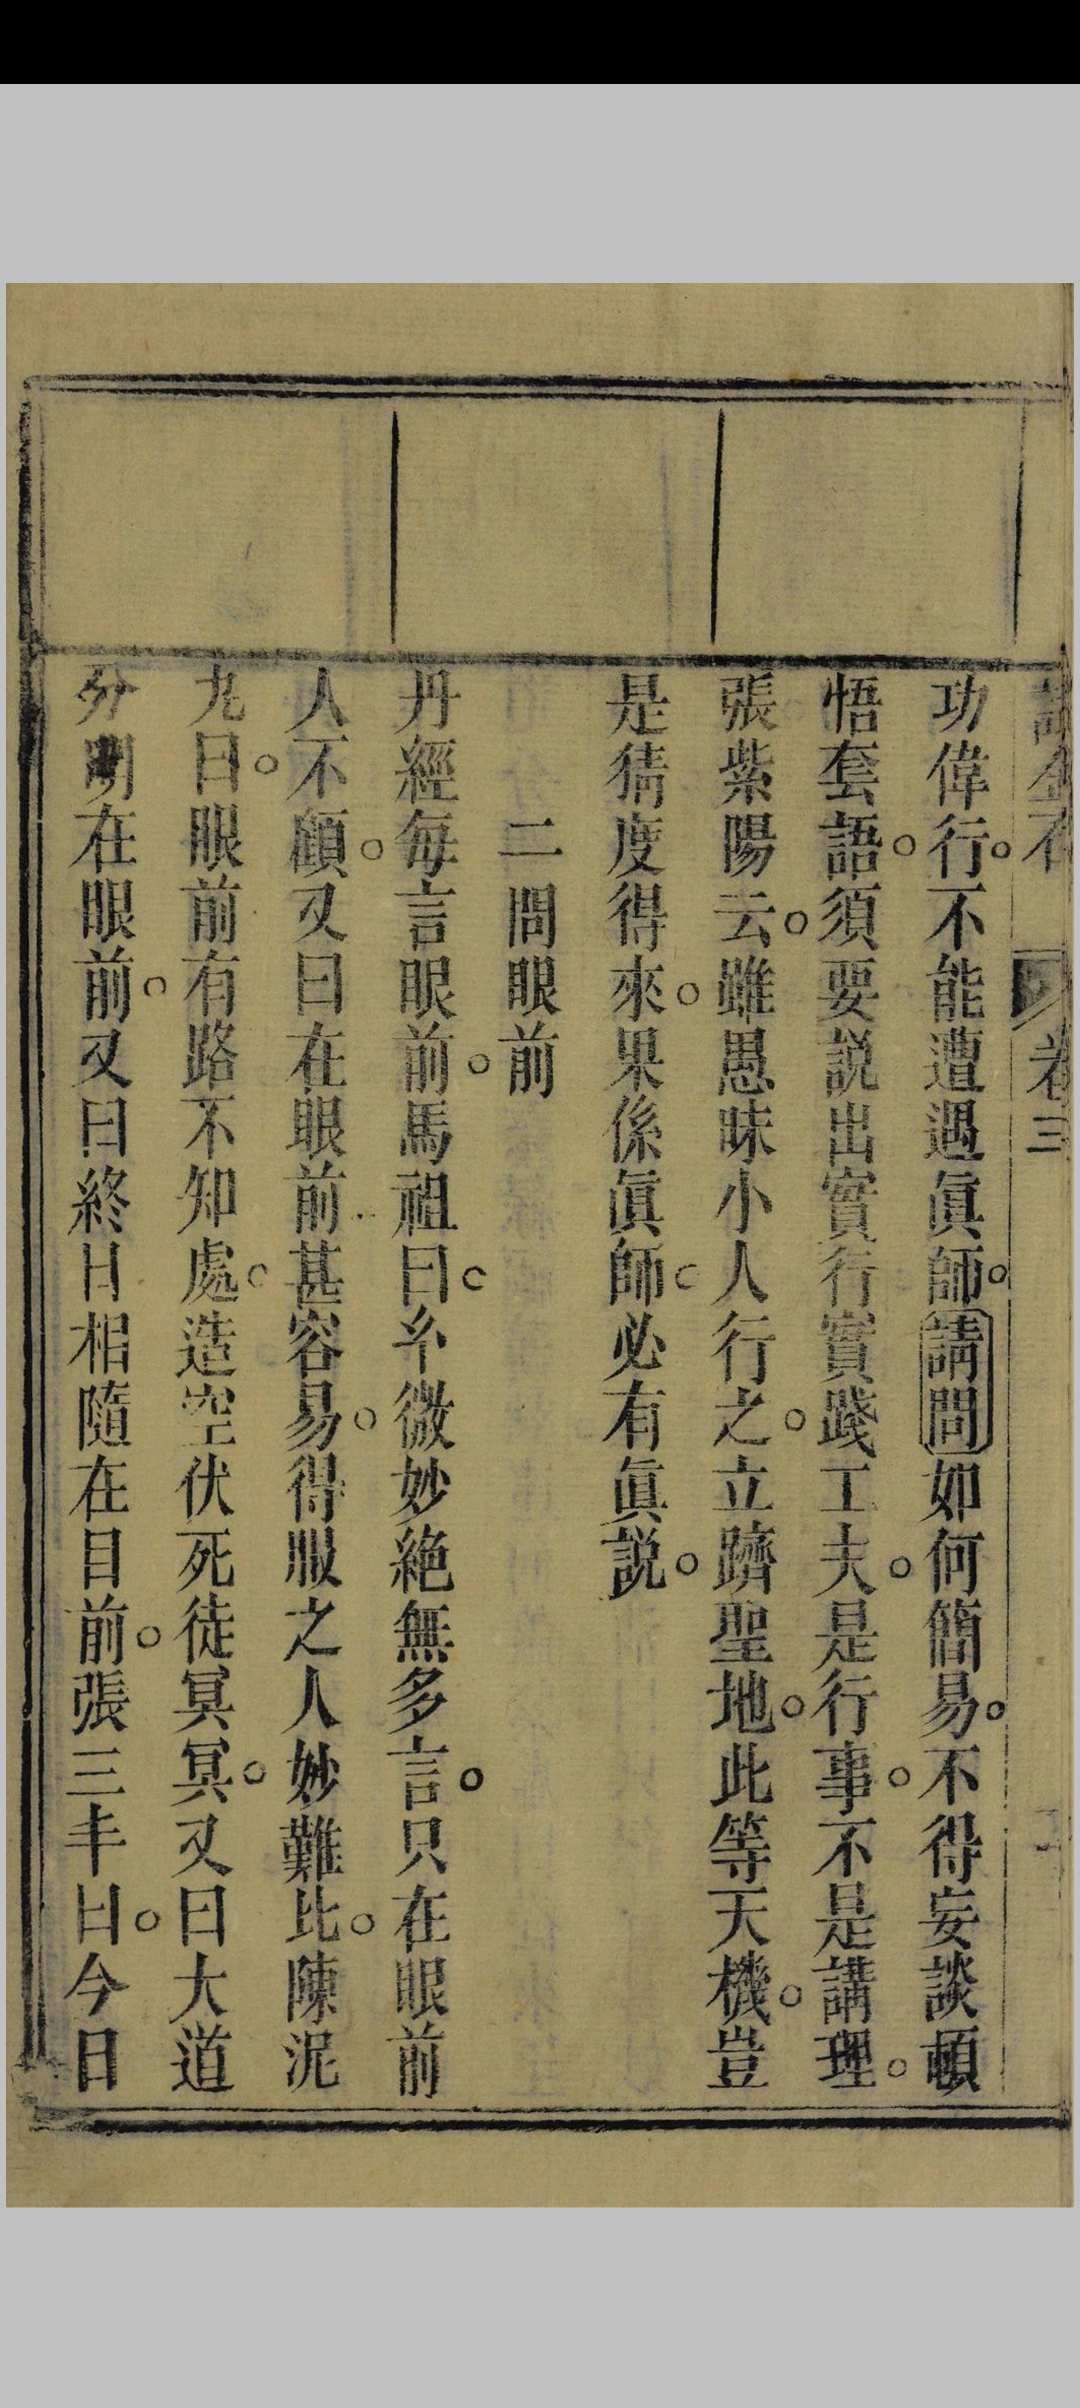 卷三
功偉行。不能遭遇眞師。請問如何簡易。不得妄談頓
悟套語。須要説出實行實踐工夫。是行事。不是講理。
張紫陽云。雖愚昧小人行之。立躋聖地。此等天機。豈
是猜度得來。果係眞師。必有眞説。
二問眼前
丹經每言眼前。馬祖曰。糸微妙絶無多言。只在眼前
人不顧。又曰在眼前甚容易。得服之人妙難比。陳泥
九曰。眼前有路不知處。造空伏死徒冥冥。又曰大道
分明在眼前。又曰終日相隨在目前。張三丰曰。今日